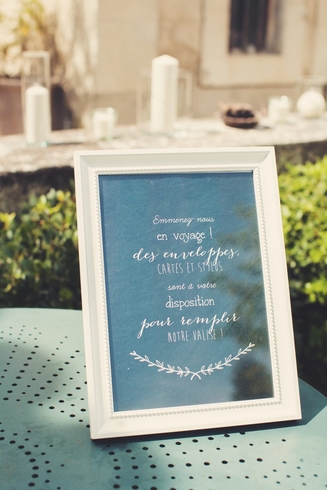 Emmenez-nous
en voyage !
des enveloppes,
CARTES ET STYLOS
sont à votre
disposition
pour remplir
NOTRE VALISE !